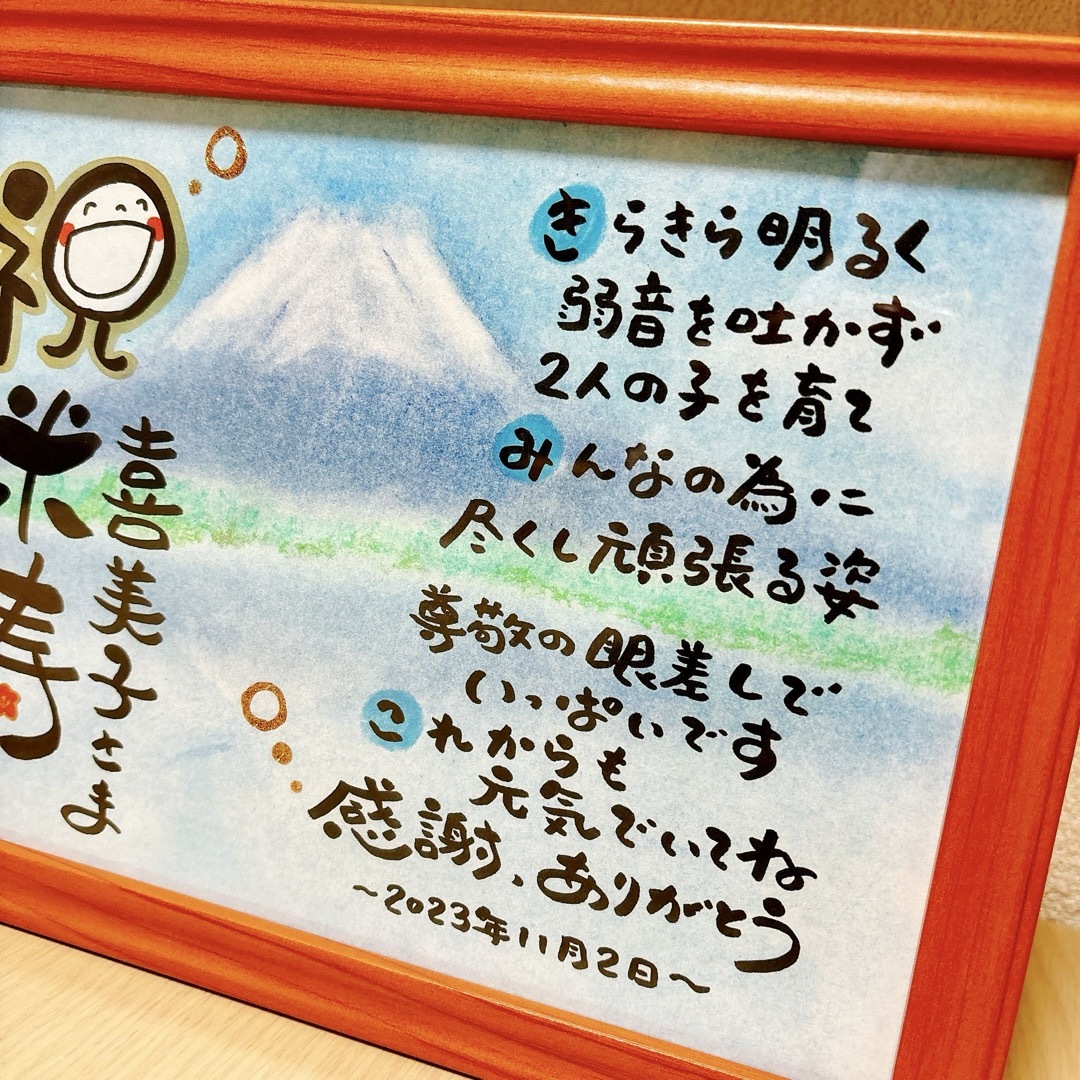 祝
米寿
喜美子さま
きらきら明るく
弱音を吐かず
2人の子を育て
みんなの為に
尽くし頑張る姿
尊敬の眼差しで
いっぱいです
これからも
元気でいてね
感謝、ありがとう
〜2023年11月2日〜